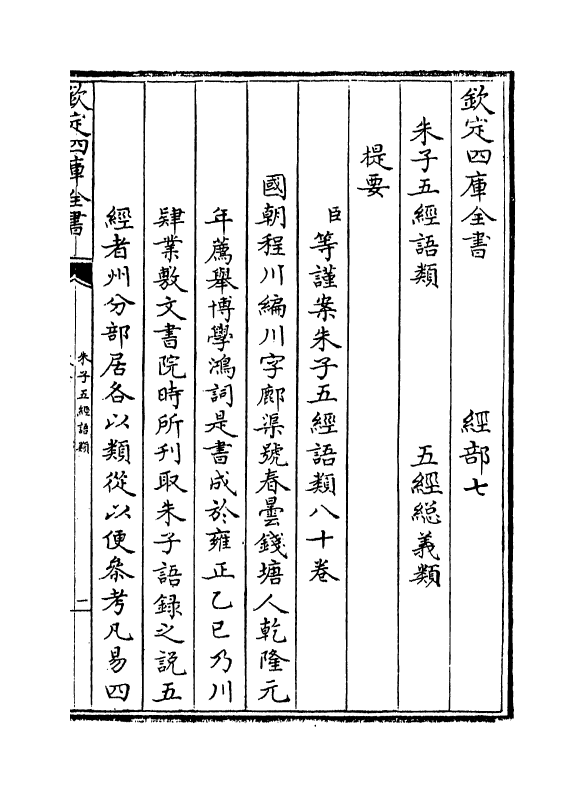 欽定四庫全書　經部七
朱子五經語類　五經總義類
提要
臣等謹案朱子五經語類八十卷
國朝程川編川字郎渠號春曇錢塘人乾隆元
年薦舉博學鴻詞是書成於雍正乙巳乃川
肄業敷文書院時所刊取朱子語録之説五
經者州分部居各以類從以便叅考凡易四
欽定四庫全書
朱子五經語類